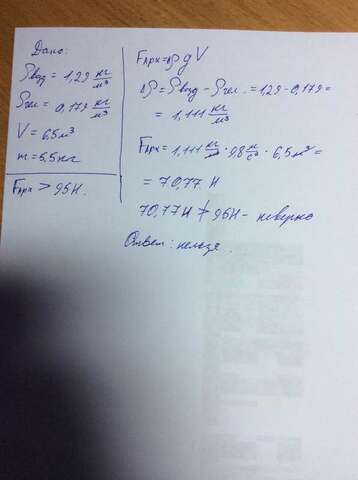 Дано:
ρвозд = 1,29 кг/м³
ρгел = 0,179 кг/м³
V = 6,5 м³
m = 5,5 кг
Fарх > 95 Н.
Fарх = Δρ g V
Δρ = ρвозд - ρгел. = 1,29 - 0,179 =
= 1,111 кг/м³
Fарх = 1,111 кг/м³ · 9,8 м/с² · 6,5 м³ =
= 70,77 Н
70,77 Н ≯ 95 Н - неверно
Ответ: нельзя.